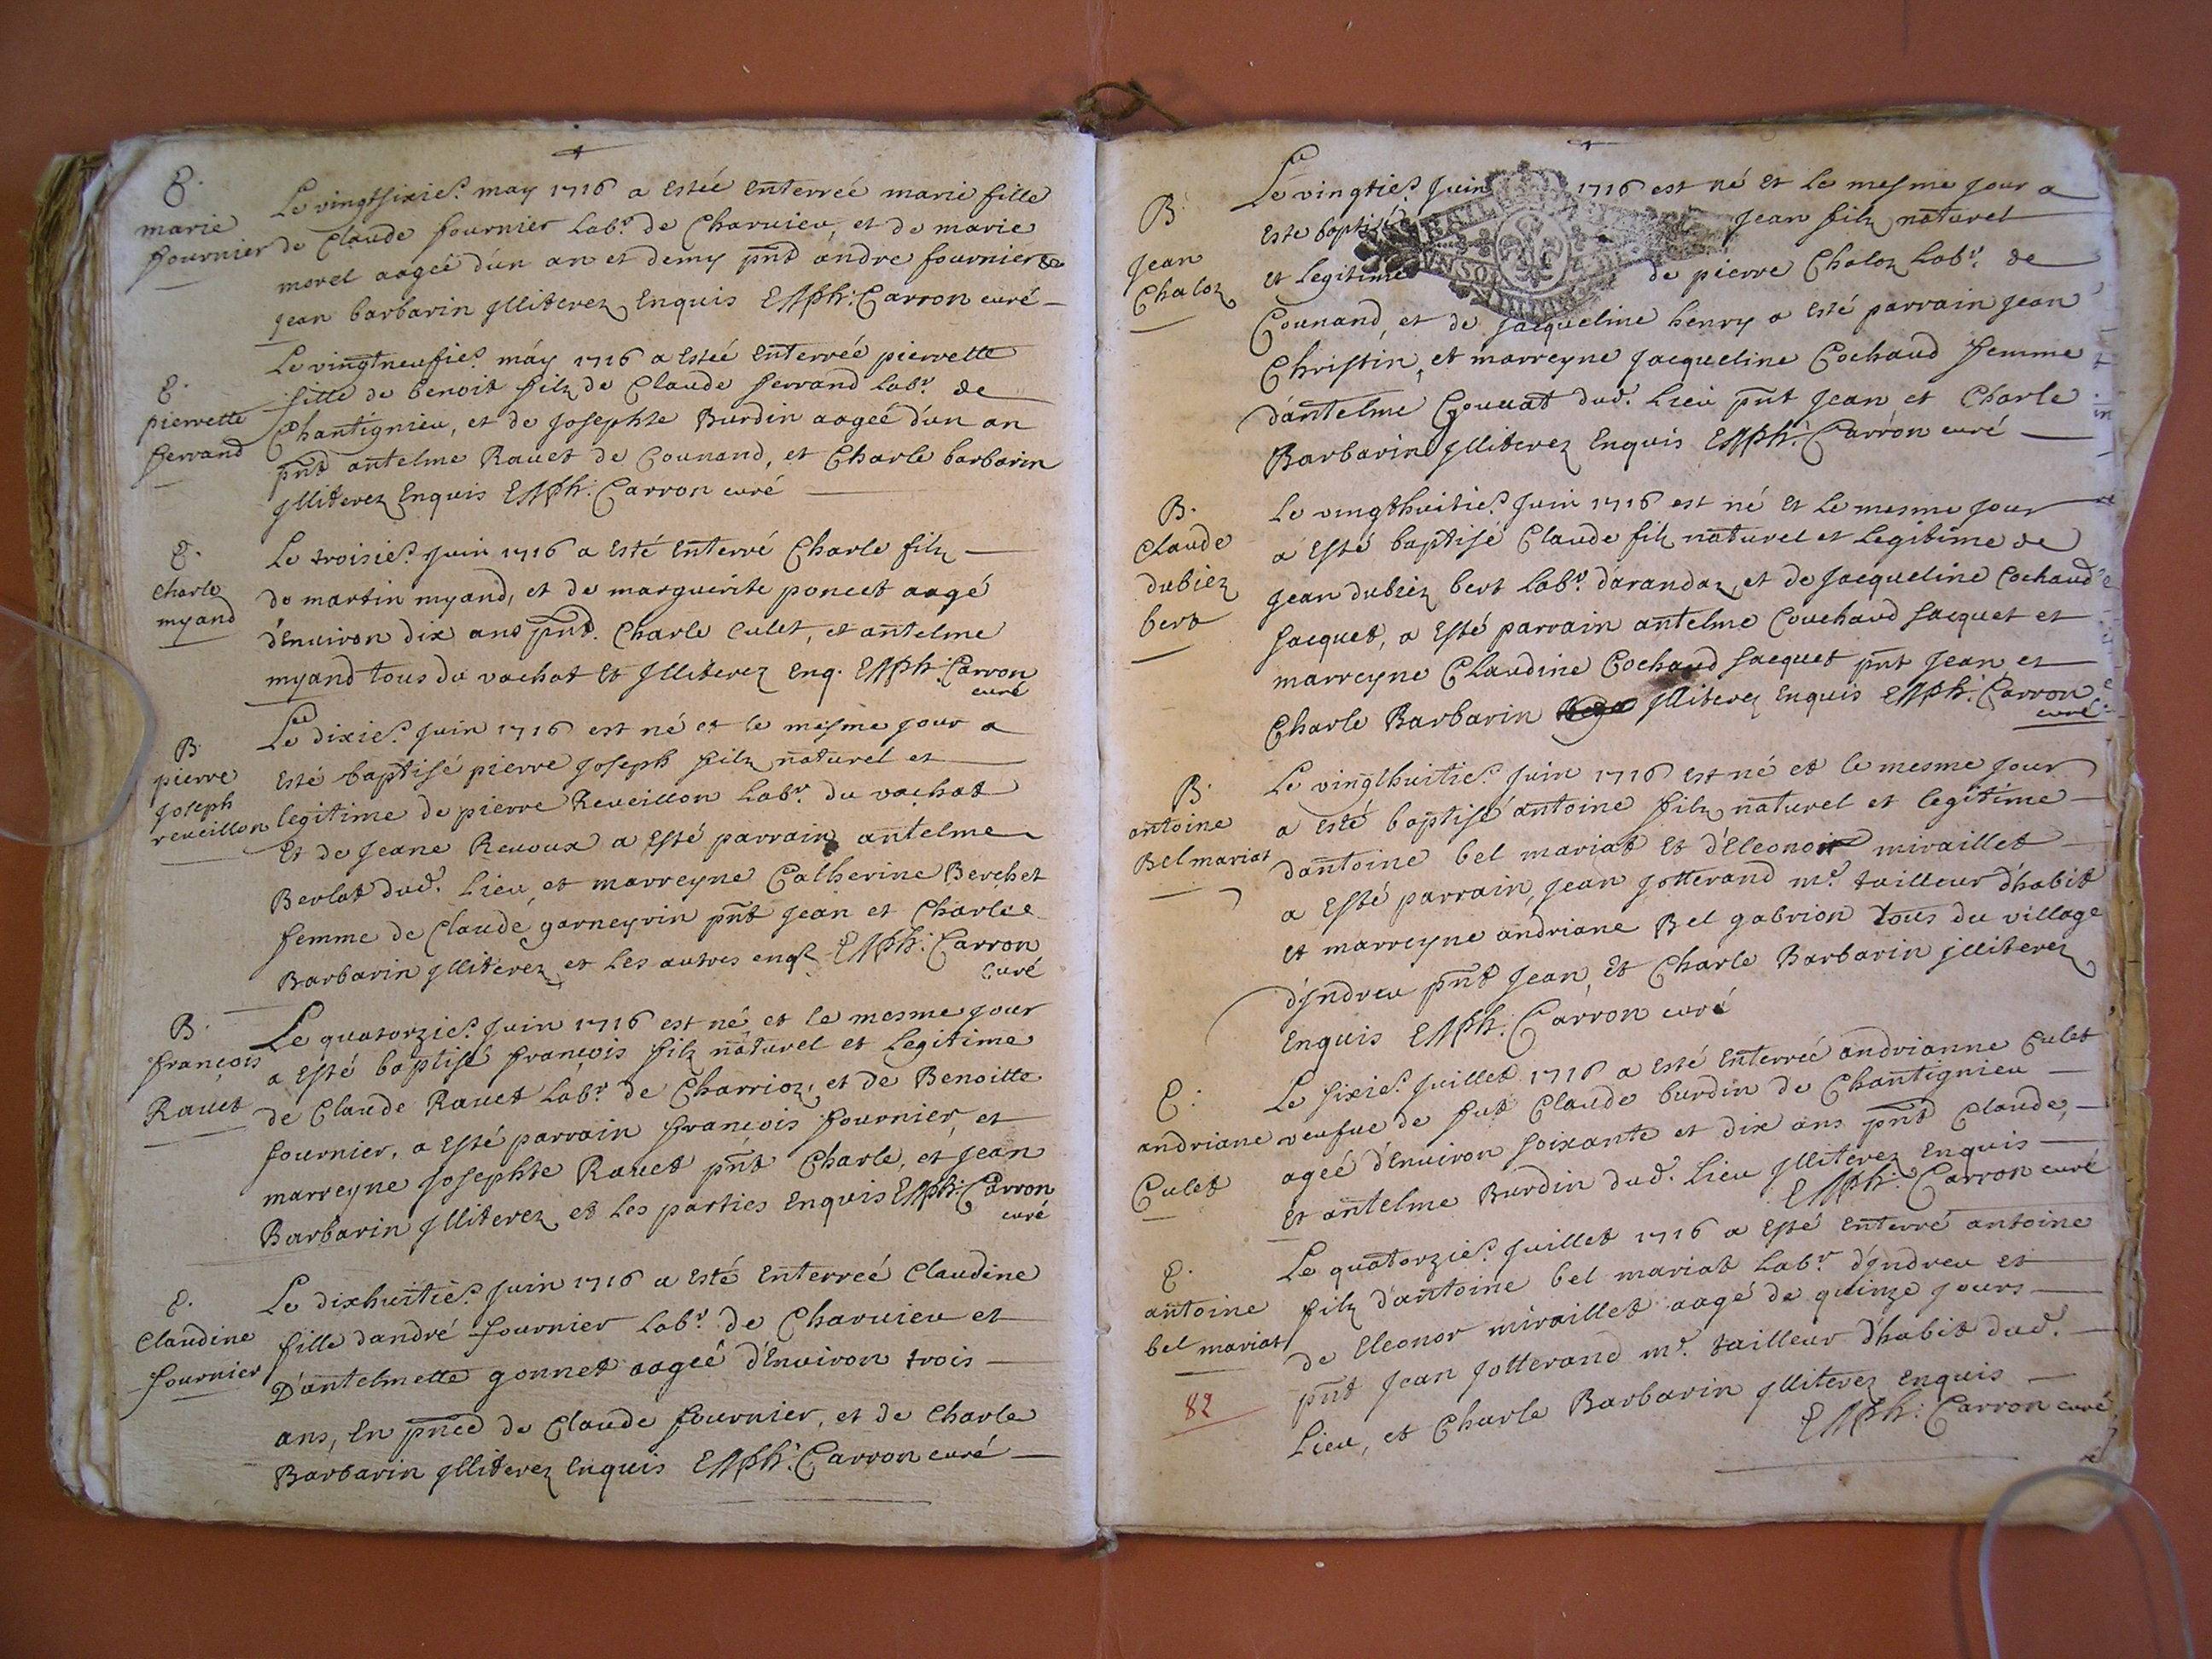 E.
marie
fournier
Le vingtsixie.e may 1716 a estéé enterréé marie fille
de Claude fournier Lab.r de Charvieu, et de marie
morel aagéé d'un an et demy pnt andre fournier &
jean barbarin jlliterez Enquis EMph: Carron curé
E.
pierrette
ferrand
Le vingtneufie.e may 1716 a estéé enterréé pierrette
fille de benoit filz de Claude ferrand lab.r de
Chantignieu, et de josephte Burdin aagéé d'un an
pnt antelme Ravet de Counand, et Charle barbarin
jlliterez Enquis EMph: Carron curé
E.
Charle
myand
Le troisie.e juin 1716 a esté enterré Charle filz
de martin myand, et de marguerite poncet aagé
d'Environ dix ans pnt. Charle Culet, et antelme
myand tous du vachat et jlliterez enq. EMph: Carron
curé
B.
pierre
joseph
reveillon
Le dixie.e juin 1716 est né et le mesme jour a
esté baptisé pierre joseph filz naturel et
legitime de pierre Reveillon lab.r du vachat
et de jeane Revoux a esté parrain antelme
Berlat dud. Lieu, et marreyne Catherine Berchet
femme de Claude garneyrin pnt jean et Charle
Barbarin jlliterez et les autres enq. EMph: Carron
Curé
B.
françois
Ravet
Le quatorzie.e juin 1716 est né, et le mesme jour
a esté baptisé françois filz naturel et legitime
de Claude Ravet lab.r de Charrioz, et de Benoitte
fournier, a esté parrain françois fournier, et
marreyne josephte Ravet pnt Charle, et jean
Barbarin jlliterez et les parties Enquis EMph: Carron
curé
E.
Claudine
fournier
Le dixhuitie.e juin 1716 a esté Enterréé Claudine
fille dandré fournier Lab.r de Charvieu et
D'antelmette gonnet aagéé d'Environ trois
ans, En pnce de Claude fournier, et de Charle
Barbarin jlliterez Enquis EMph: Carron curé
B.
Jean
Chaloz
Le vingtie.e juin 1716 est né et le mesme jour a
este baptisé jean filz naturel
et legitime de pierre Chaloz lab.r de
Counand, et de jacqueline henry a esté parrain jean
Christin, et marreyne jacqueline Cochaud femme
d'antelme Gouuat dud. Lieu pnt jean et Charle
Barbarin jlliterez Enquis EMph: Carron curé
B.
Claude
dubiez
bert
Le vingthuitie.e juin 1716 est né et le mesme jour
a esté baptisé Claude filz naturel et Legitime de
jean dubiez bert lab.r d'arandaz, et de jacqueline Cochaud
jacquet, a esté parrain antelme Couchaud jacquet et
marreyne Claudine Cochaud jacquet pnt jean, et
Charle Barbarin jlliterez Enquis EMph: Carron
curé
B.
antoine
Bel mariat
Le vingthuitie.e juin 1716 est né et le mesme jour
a esté baptisé antoine filz naturel et legitime
dantoine bel mariat et d'Eleonor miraillet
a esté parrain, jean jotterand m.e tailleur d'habit
et marreyne andriane Bel gabrion tous du village
d'jndreu pnt jean, et Charle Barbarin jlliterez
Enquis EMph: Carron curé
E:
andriane
Culet
Le sixie.e juillet 1716 a esté enterréé andrianne Culet
veufue de fut Claude burdin de Chantignieu
agéé d'Environ soixante et dix ans pnt Claude,
et antelme Burdin dud. Lieu jlliterez Enquis
EMph: Carron curé
E.
antoine
bel mariat
Le quatorzie.e juillet 1716 a esté enterré antoine
filz d'antoine bel mariat lab.r d'jndreu et
de Eleonor miraillet aagé de quinze jours
pnt jean jotterand m.e tailleur d'habit dud.
Lieu, et Charle Barbarin jlliterez Enquis
EMph: Carron curé
82